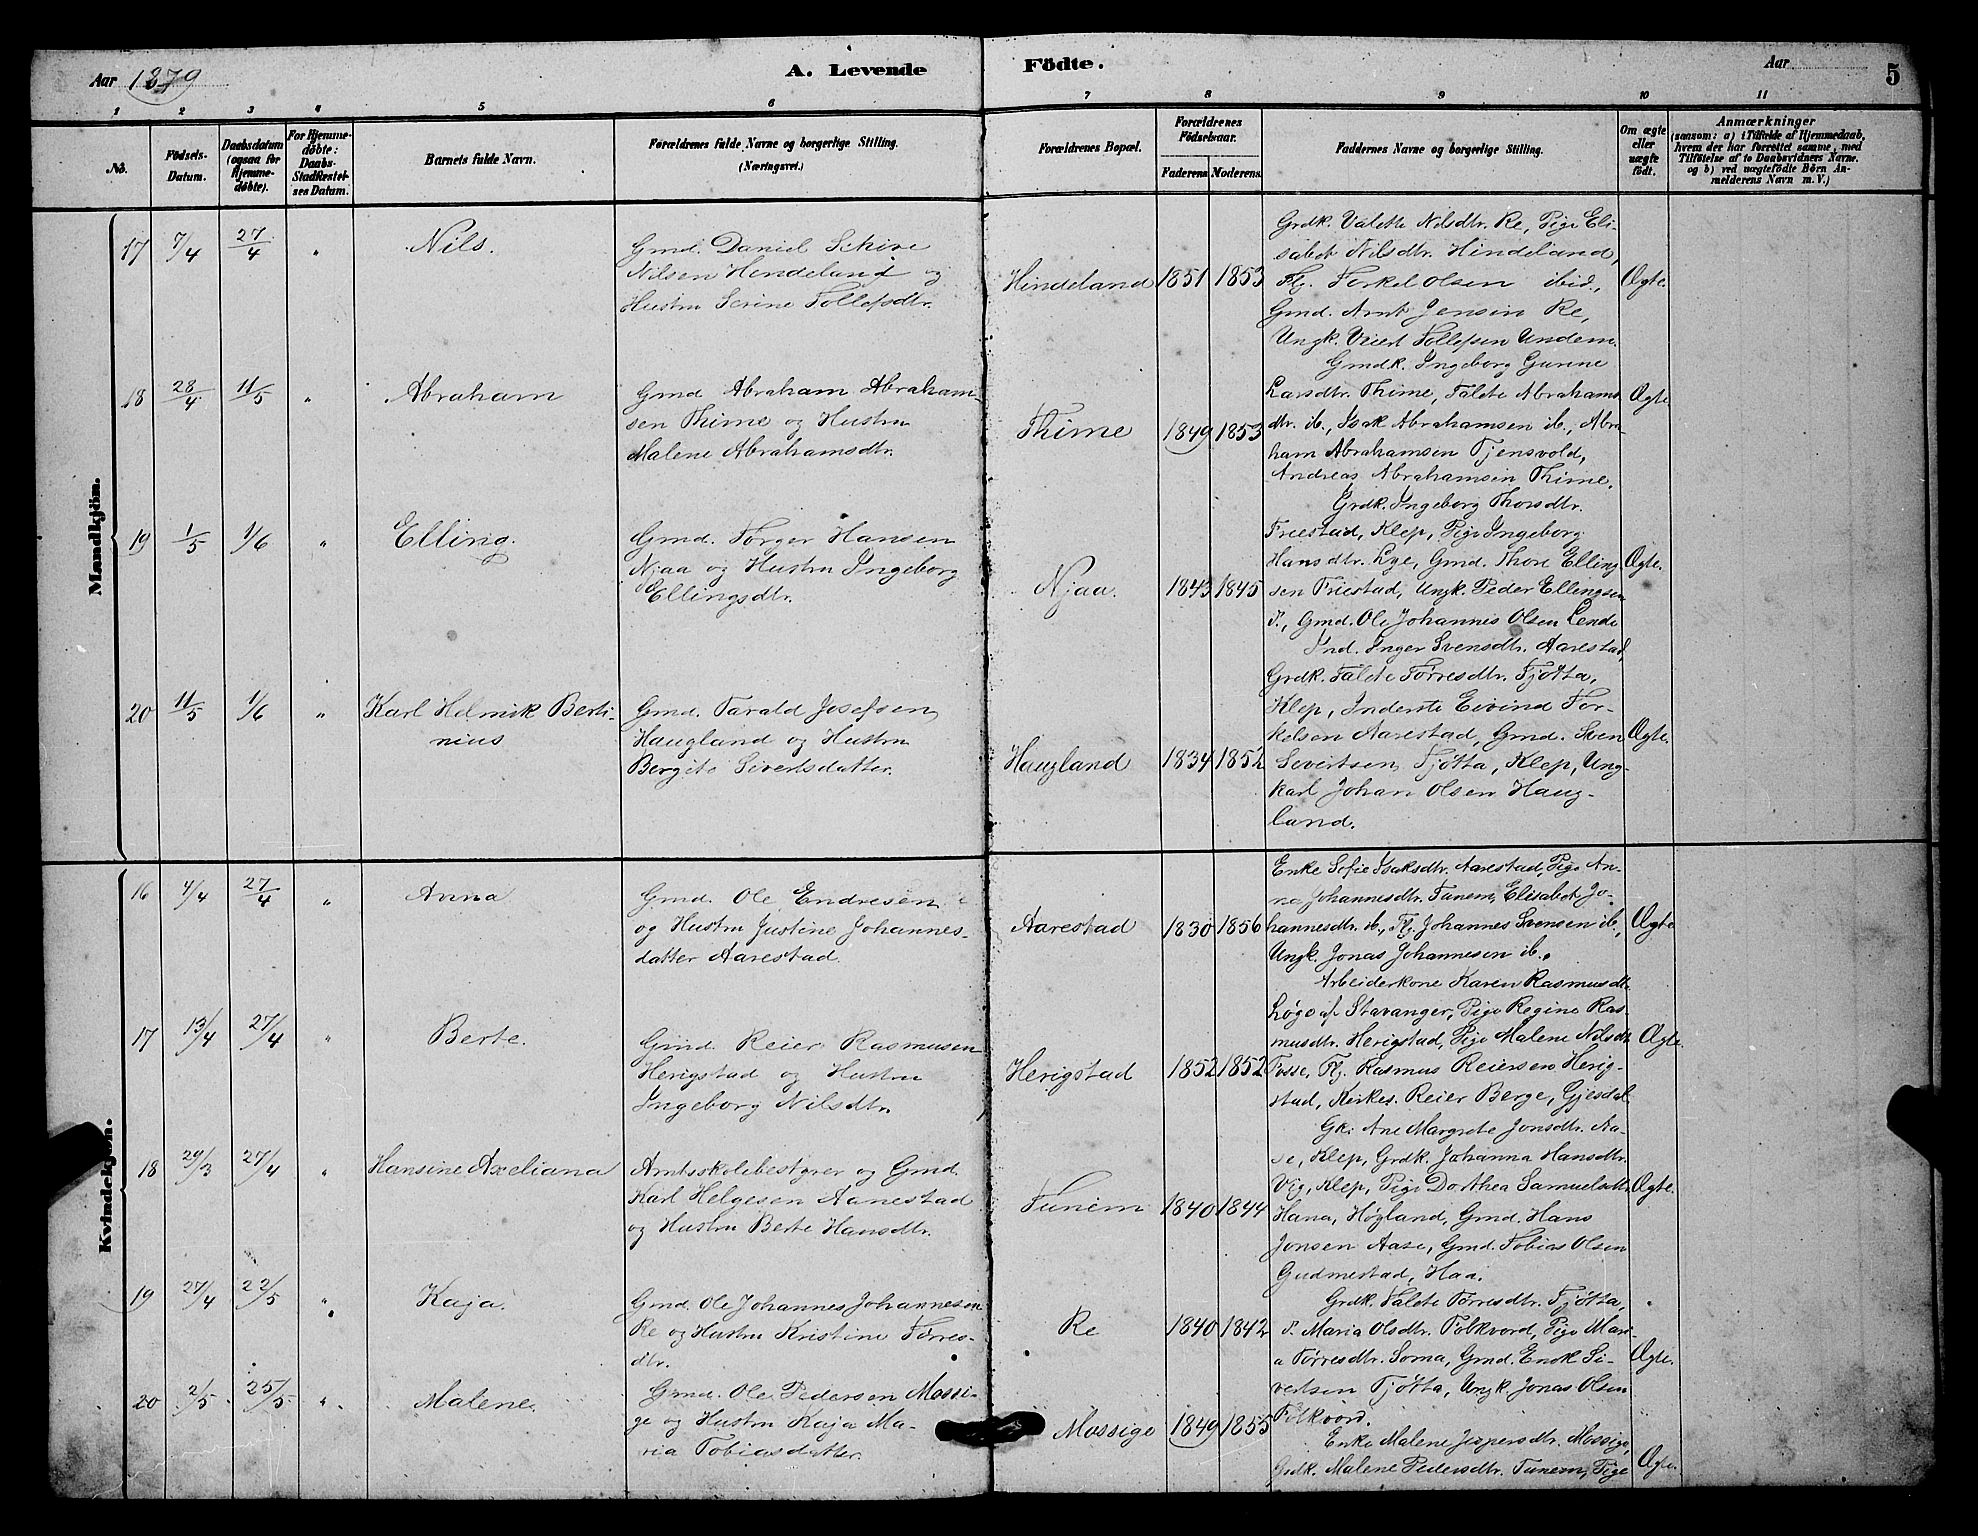 Aar 1879
A. Levende Födte.
Aar
5
1 2 3 4 5 6 7 8 9 10 11
No.
Födsels-
Datum.
Daabsdatum
(ogsaa for
Hjemme-
döbte).
For Hjemme-
döbte:
Daabs-
Stadfæstel-
ses Datum.
Barnets fulde Navn.
Forældrenes fulde Navne og borgerlige Stilling.
(Næringsvei.)
Forældrenes Bopæl.
Forældrenes
Födselsaar.
Faderens Moderens
Faddernes Navne og borgerlige Stilling.
Om ægte
eller
uægte
født.
Anmærkninger
(saasom: a) i Tilfælde af Hjemmedaab,
hvem der har forrettet samme, med
Tilföielse af to Daabsvidners Navne.
og b) ved uægtefödte Börn An-
melderens Navn m.V.)
Mandkjön.
17 7/4 27/4 " Nils.
Gmd. Daniel Schive
Nilsen Hindeland og
Hustru Serine Tollefsdtr.
Hindeland 1851 1853
Grdk. Valette Nilsdtr. Re, Pige Eli-
sabet Nilsdtr. Hindeland,
Fl. Torkel Olsen ibid.,
Gmd. Arnt Jensen Re,
Ungk. Viert Tollefsen Undem.
Ægte.
18 28/4 11/5 " Abraham
Gmd Abraham Abraham-
sen Thime og Hustru
Malene Abrahamsdtr.
Thime 1849 1853
Gmdk. Ingeborg Gurine
Larsdtr. Thime, Talete Abrahams
dtr. ib., Isak Abrahamsen ib., Abra-
ham Abrahamsen Tjensvold,
Andreas Abrahamsen Thime.
Ægte.
19 1/5 1/6 " Elling.
Gmd. Torger Hansen
Njaa og Hustru Ingeborg
Ellingsdtr.
Njaa. 1843 1845
Grdk. Ingeborg Thorsdtr.
Friestad, Klep, Pige Ingeborg
Hansdtr. Lye, Gmd. Thore Elling
sen Friestad, Ungk. Peder Ellingsen
S., Gmd. Ole Johannes Olsen Lende
Ægte.
20 11/5 1/6 " Karl Helmik Berti-
nius
Gmd. Tarald Josefsen
Haugland og Hustru
Bergite Sivertsdatter.
Haugland 1834 1852
Ind. Inger Svensdtr. Aarestad,
Grdk. Talete Tørresdtr. Tjøtta,
Klep, Inderste Eivind Tor-
kelsen Aarestad, Gmd. Sven
Severtsen Tjøtta, Klep, Ung-
karl Johan Olsen Haug-
land.
Ægte.
Kvindekjön.
16 4/4 27/4 " Anna
Gmd. Ole Endresen
og Hustru Justine Johannes-
datter Aarestad.
Aarestad 1830 1856
Enke Sofie Isaksdtr. Aarestad, Pige An-
na Johannesdtr. Tunem, Elisabet Jo-
hannesdtr. ib., Fl. Johannes Svensen ib.,
Ungk. Jonas Johannesen ib.
Ægte
17 13/4 27/4 " Berte.
Gmd. Reier Rasmusen
Herigstad og Hustru
Ingeborg Nilsdtr.
Herigstad 1852 1852
Arbeiderkone Karen Rasmusdtr.
Løge af Stavanger, Pige Regine Ras-
musdtr. Herigstad, Pige Malene Nilsdtr
Fosse, Fl. Rasmus Reiersen Herig-
stad, Kirkes. Reier Berge, Gjesdal
Ægte.
18 29/3 27/4 " Hansine Axeliana
Amtsskolebestyrer og Gmd.
Karl Helgesen Aanestad
og Hustru Berte Hansdtr.
Tunem 1840 1844
Gk. Ane Margrete Jonsdtr. Aa-
se, Klep, Grdk. Johanna Hansdtr.
Vig, Klep, Pige Dorthea Samuelsdtr.
Hana, Høgland, Gmd. Hans
Jonsen Aase, Gmd. Tobias Olsen
Gudmestad, Haa.
Ægte.
19 27/4 22/5 " Kaja.
Gmd. Ole Johannes Johannesen
Re og Hustru Kristine Tørres-
dtr.
Re 1840 1842
Grdk. Talete Tørresdtr. Tjøtta,
P. Maria Olsdtr. Folkvord, Pige Mari-
a Tørresdtr. Soma, Gmd. Enok Si-
vertsen Tjøtta, Ungk. Jonas Olsen
Folkvord.
Ægte.
20 2/5 25/5 " Malene.
Gmd. Ole Pedersen Mossi-
ge og Hustru Kaja Ma-
ria Tobiasdatter.
Mossige 1849 1855
Enke Malene Jespersdtr. Mossige,
Grdk. Malene Pedersdtr. Tunem, Pige
Ægte.